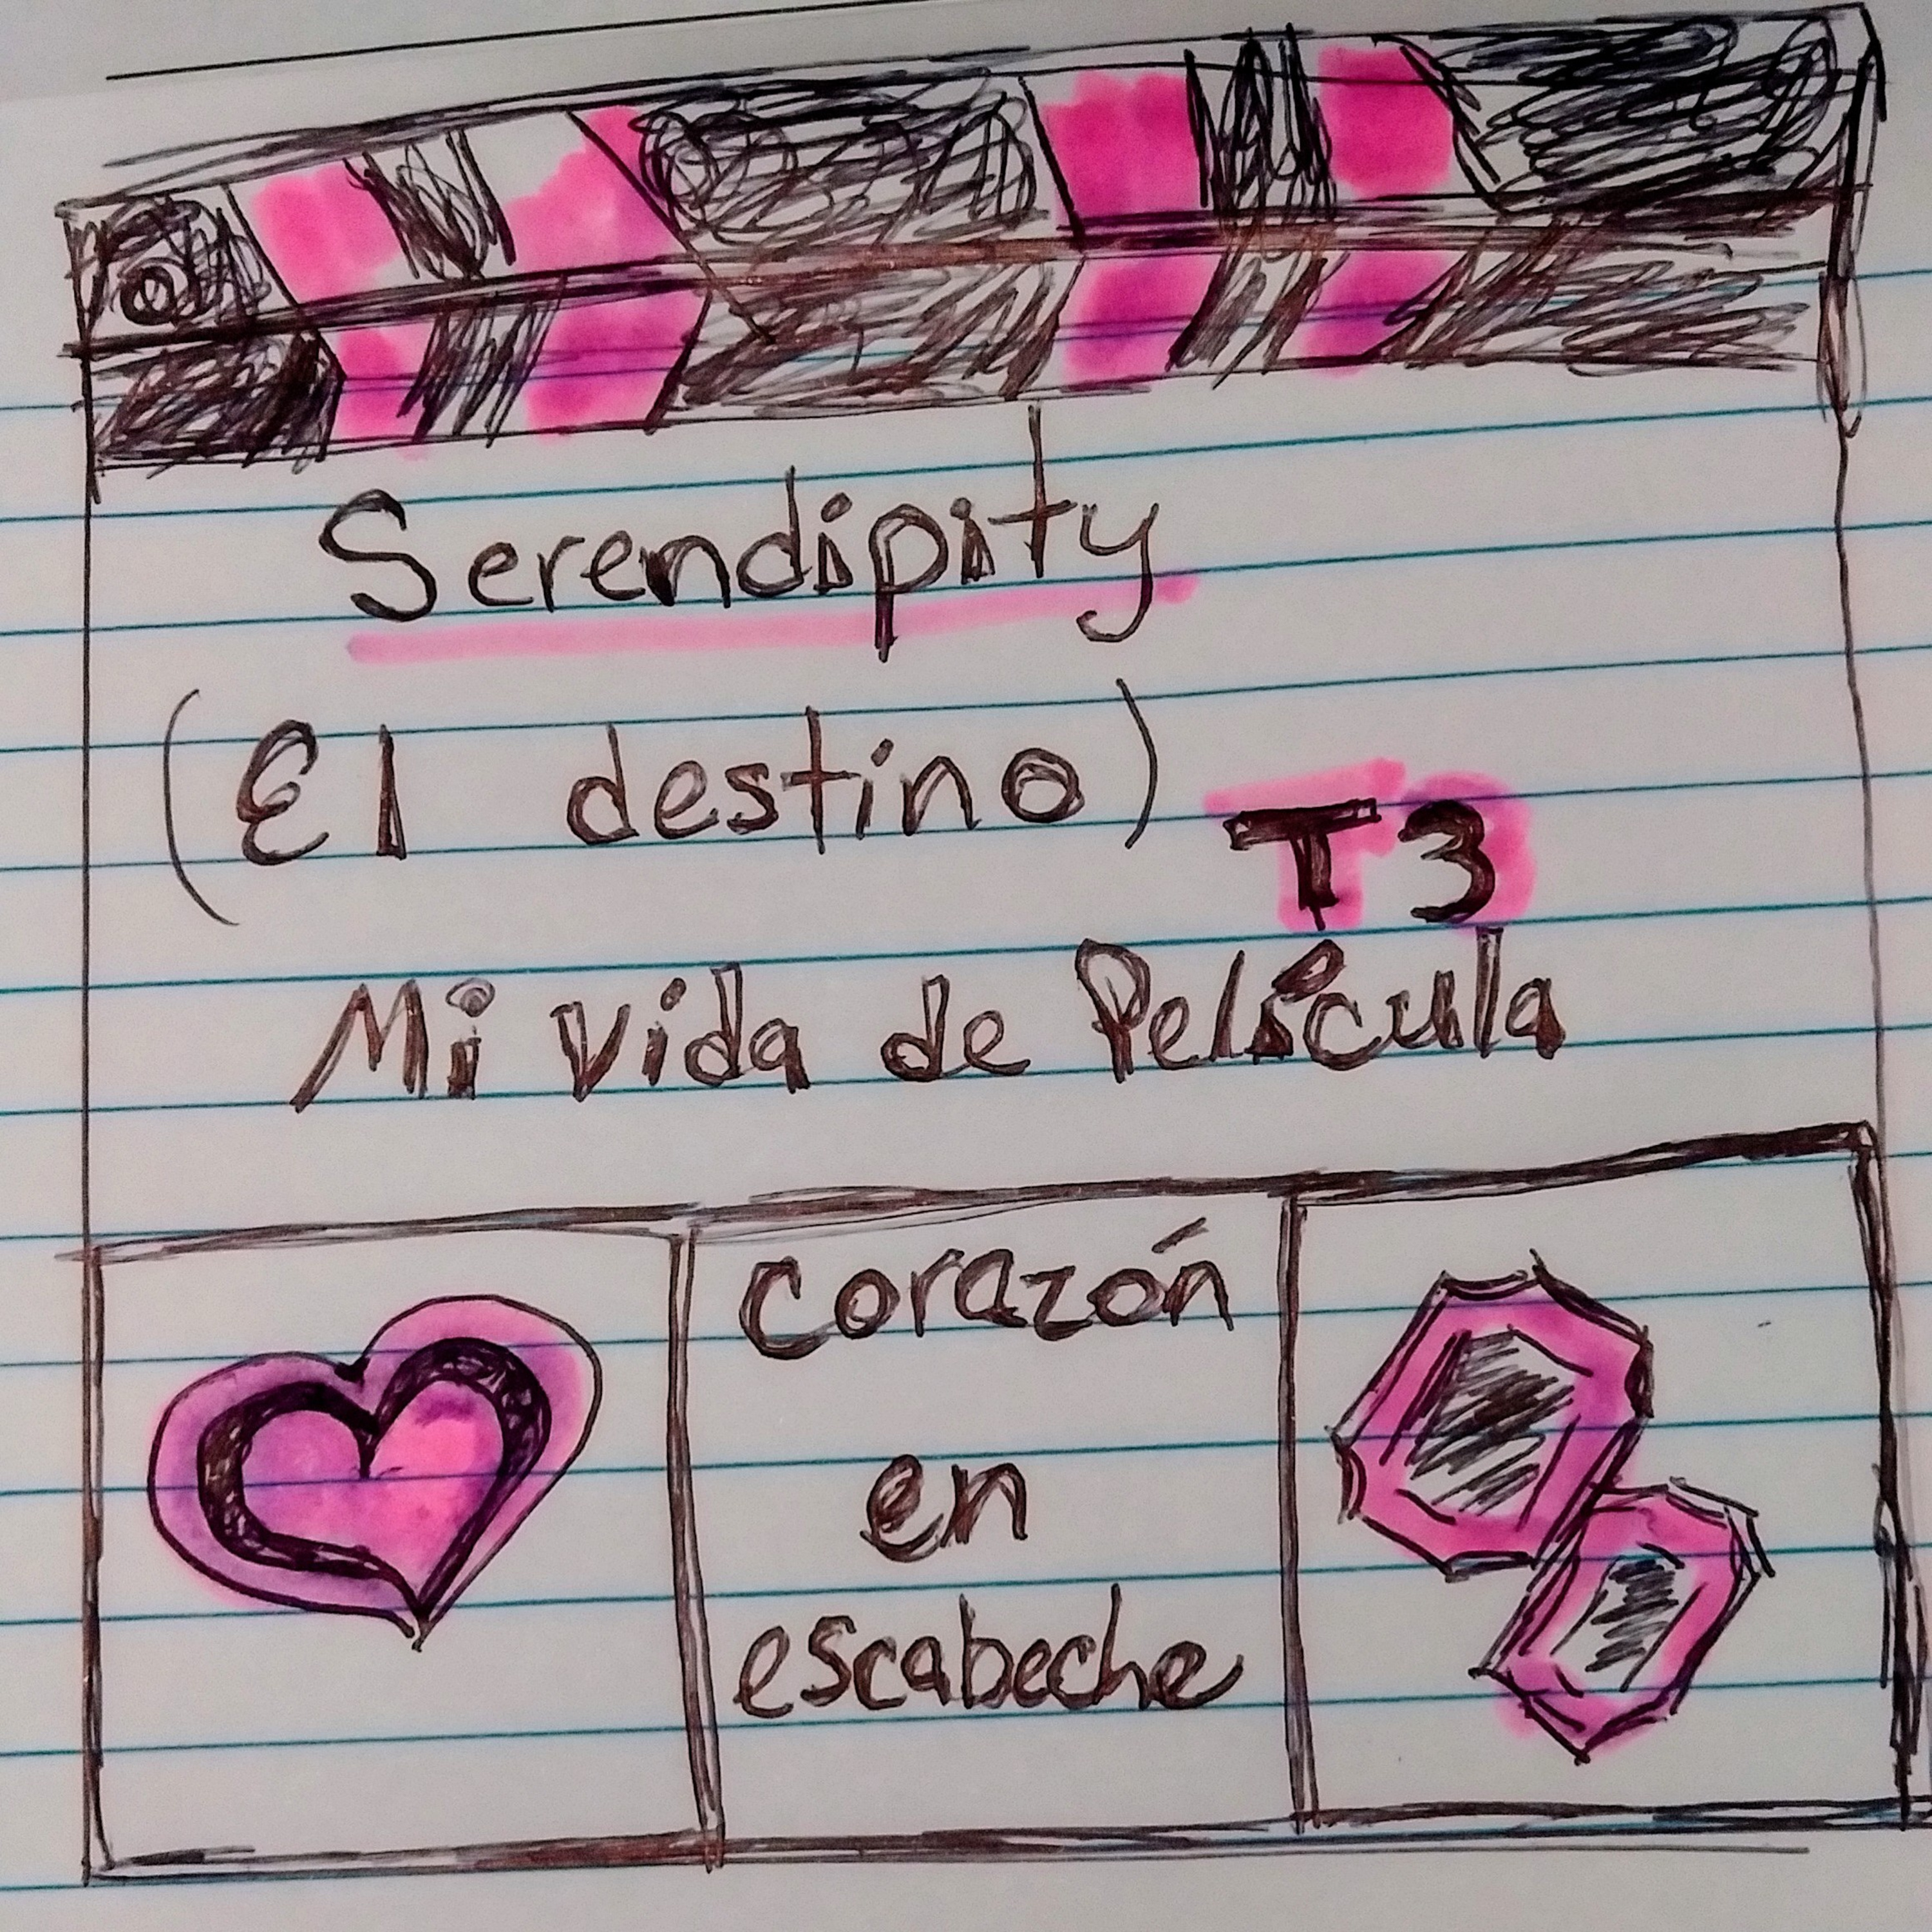 Serendipity
(El destino)
T3
Mi vida de Película
Corazón
en
escabeche